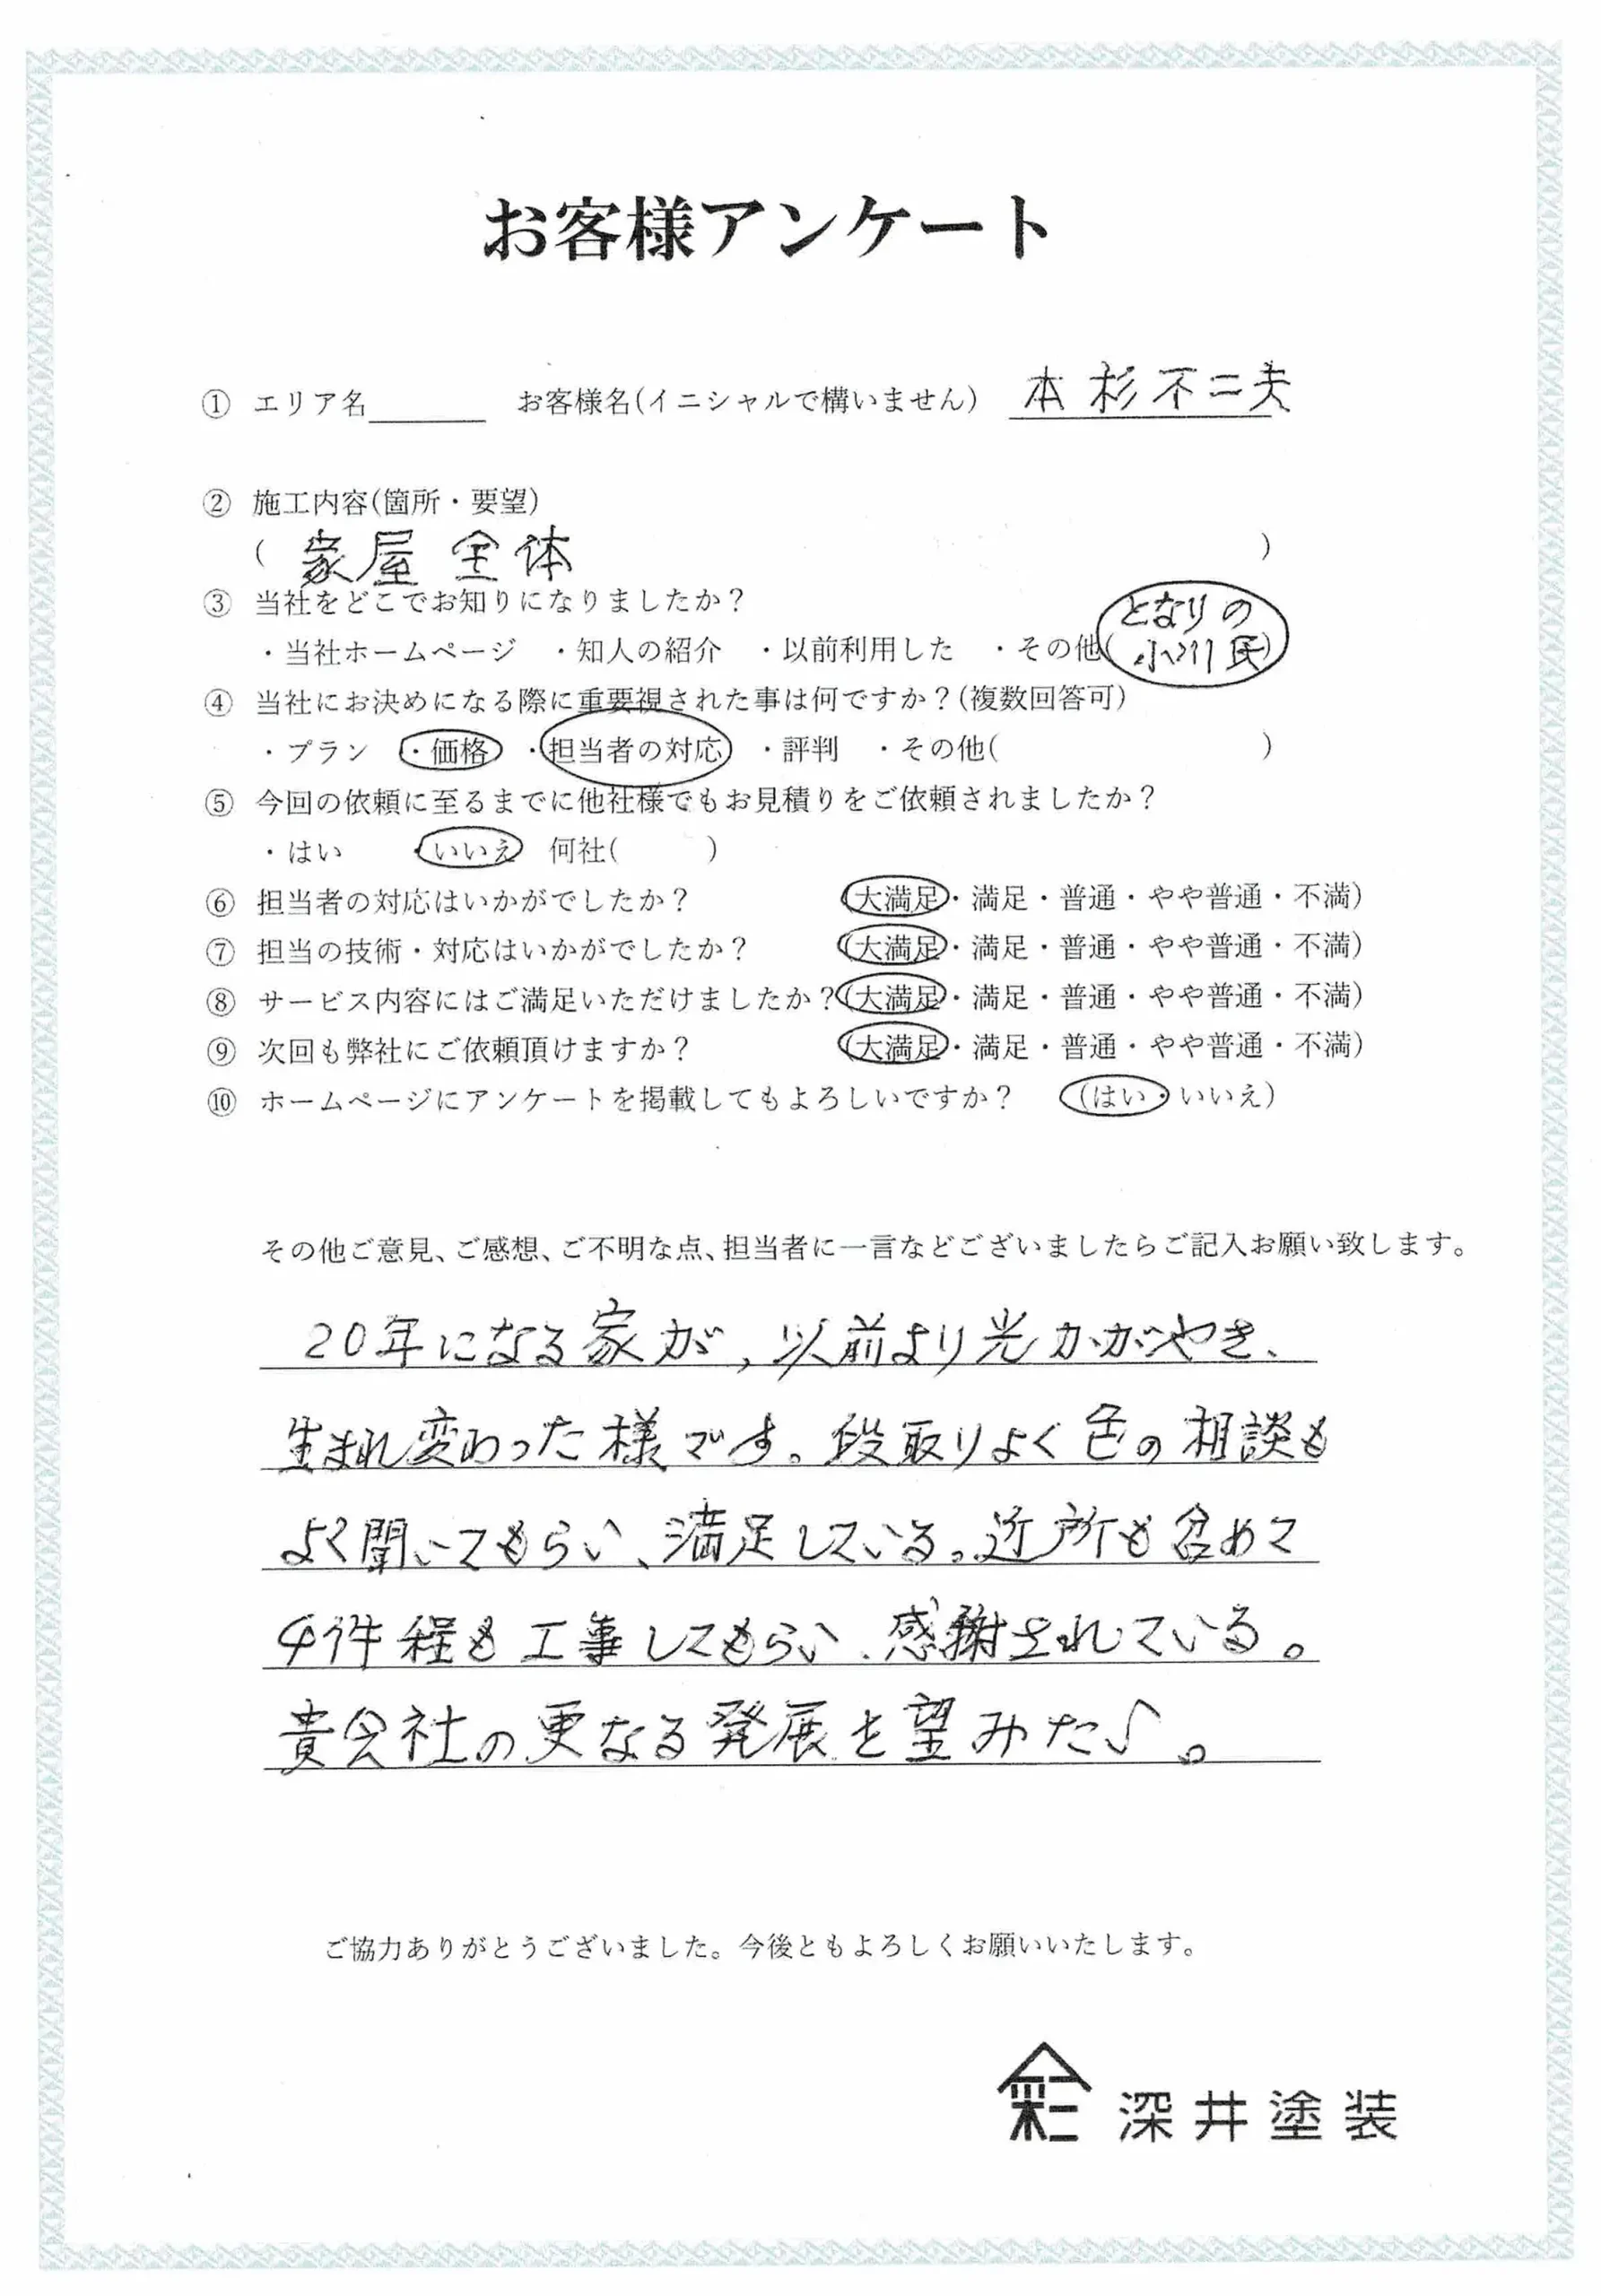 お客様アンケート
① エリア名 お客様名(イニシャルで構いません) 本杉不二夫
② 施工内容(箇所・要望)
( 家屋全体 )
③ 当社をどこでお知りになりましたか?
・当社ホームページ ・知人の紹介 ・以前利用した ・その他(となりの
小川氏)
④ 当社にお決めになる際に重要視された事は何ですか?(複数回答可)
・プラン ・価格 ・担当者の対応 ・評判 ・その他( )
⑤ 今回の依頼に至るまでに他社様でもお見積りをご依頼されましたか?
・はい ・いいえ 何社( )
⑥ 担当者の対応はいかがでしたか? (大満足・満足・普通・やや普通・不満)
⑦ 担当の技術・対応はいかがでしたか? (大満足・満足・普通・やや普通・不満)
⑧ サービス内容にはご満足いただけましたか?(大満足・満足・普通・やや普通・不満)
⑨ 次回も弊社にご依頼頂けますか? (大満足・満足・普通・やや普通・不満)
⑩ ホームページにアンケートを掲載してもよろしいですか? (はい・いいえ)
その他ご意見、ご感想、ご不明な点、担当者に一言などございましたらご記入お願い致します。
20年になる家が,以前より光かがやき、
生まれ変わった様です。段取りよく色の相談も
よく聞いてもらい、満足している。近所も含めて
4件程も工事してもらい、感謝されている。
貴会社の更なる発展を望みたい。
ご協力ありがとうございました。今後ともよろしくお願いいたします。
深井塗装